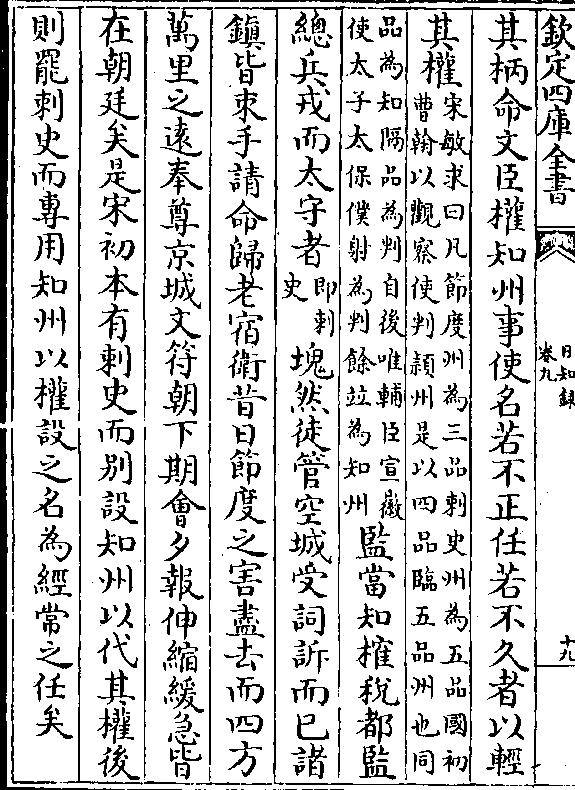 欽定四庫全書
日知錄
卷九
十九
其柄命文臣權知州事使名若不正任若不久者以輕
其權
宋敏求曰凡節度州為三品刺史州為五品國初
曹翰以觀察使判潁州是以四品臨五品州也同
品為知隔品為判自後唯輔臣宣徽
使太子太保僕射為判餘竝為知州
監當知榷稅都監
總兵戎而太守者
即刺
史
塊然徒管空城受詞訴而已諸
鎮皆束手請命歸老宿衛昔日節度之害盡去而四方
萬里之遠奉尊京城文符朝下期會夕報伸縮緩急皆
在朝廷矣是宋初本有刺史而别設知州以代其權後
則罷刺史而專用知州以權設之名為經常之任矣